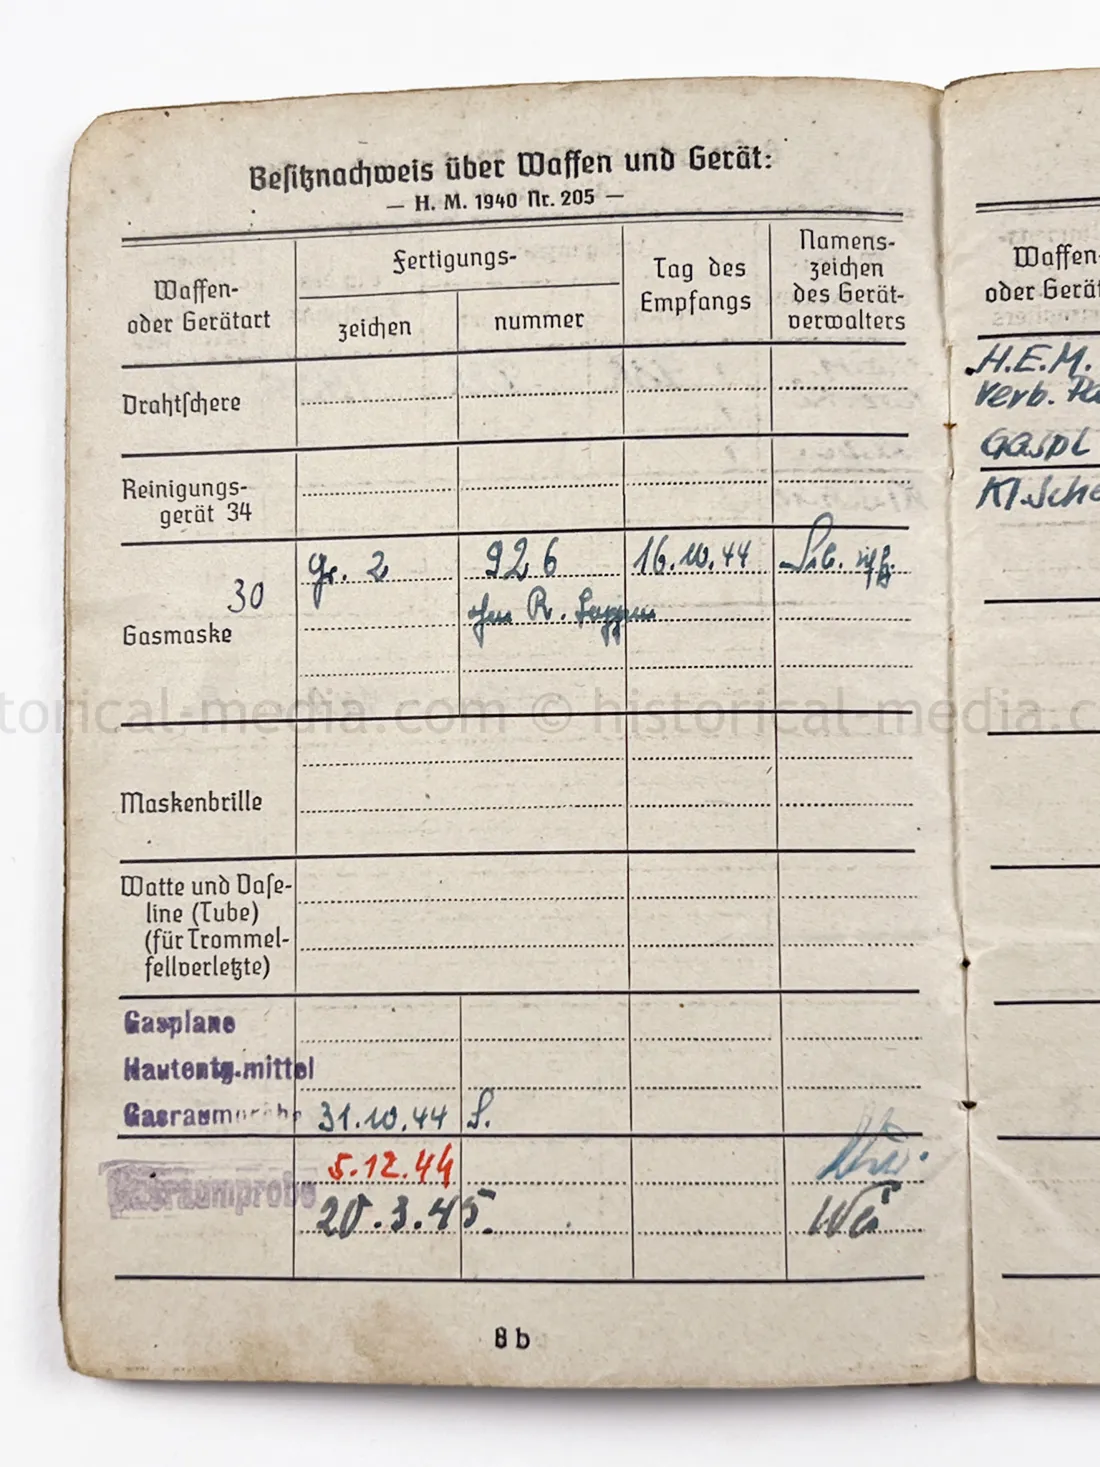 Besitznachweis über Waffen und Gerät:
— H. M. 1940 Nr. 205 —
Waffen-
oder Gerätart
Fertigungs-
zeichen
nummer
Tag des
Empfangs
Namens-
zeichen
des Gerät-
verwalters
Drahtschere
Reinigungs-
gerät 34
30
Gasmaske
Gr. 2
926
16.10.44
R.
Maskenbrille
Watte und Vase-
line (Tube)
(für Trommel-
fellverletzte)
Gasplane
Hautentg.mittel
Gasraumprobe 31.10.44 S.
5.12.44
Gasraumprobe
20.3.45.
8 b
Waffen-
oder Gerät
H.E.M.
Verb.
Gaspl
Kl.Sche
torical-media.com © historical-media.c